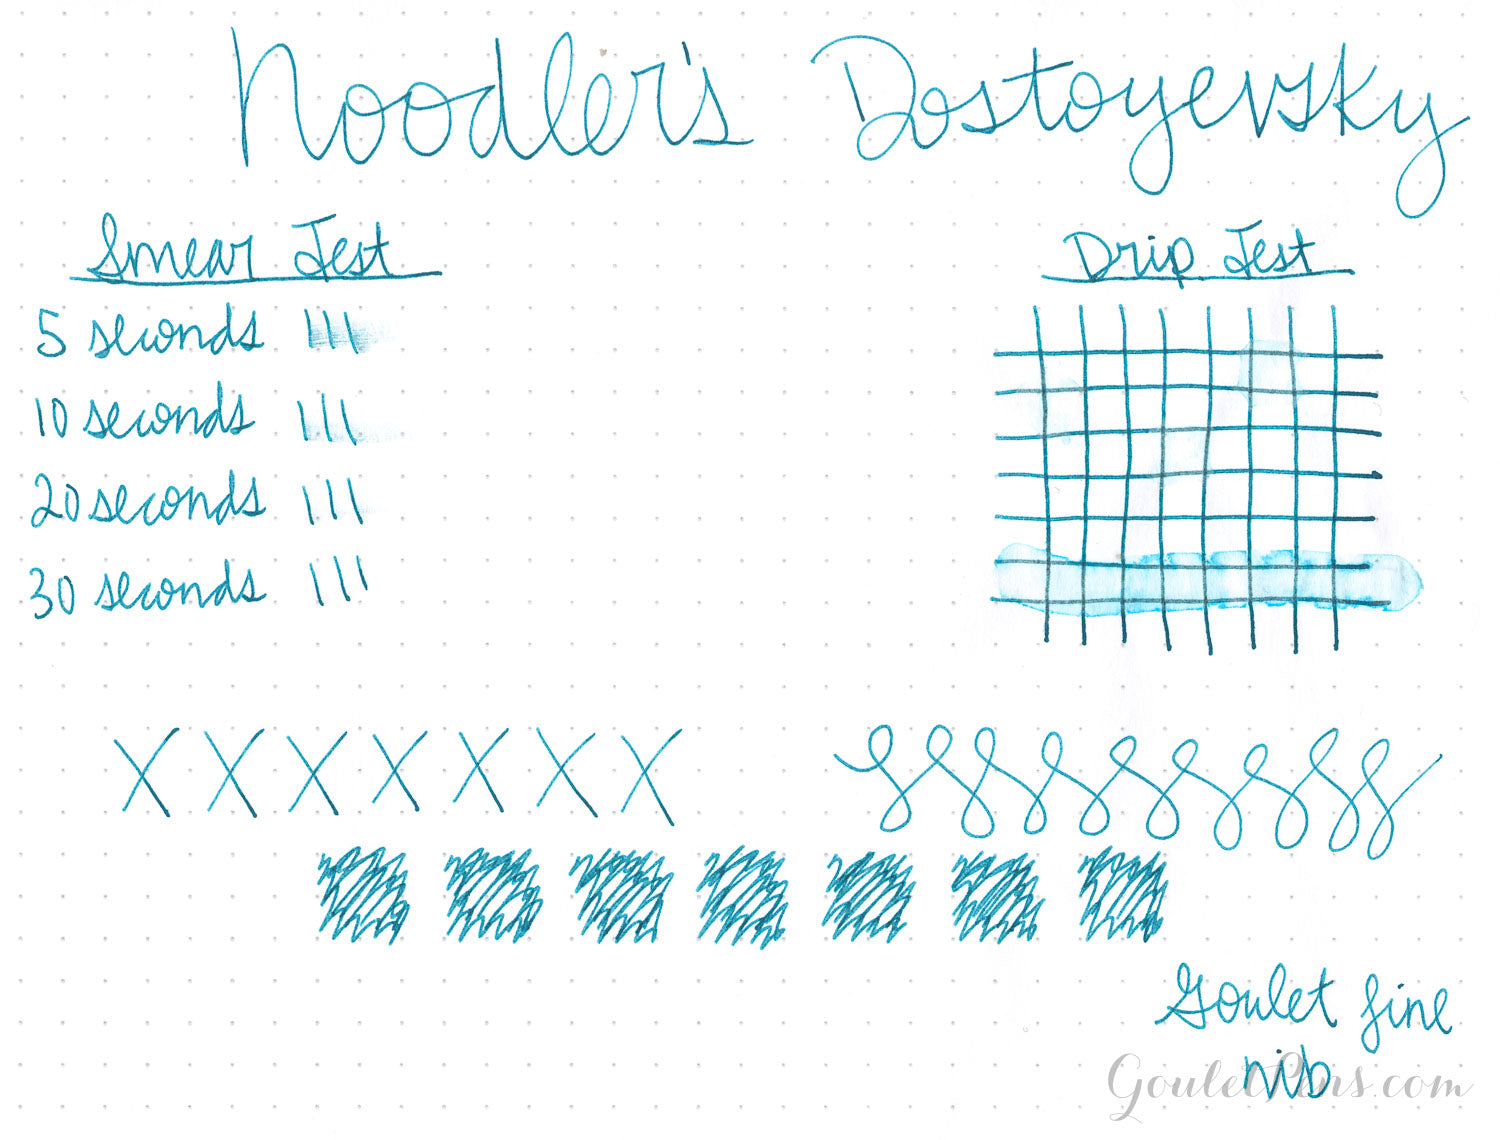 Noodler's Dostoyevsky
Smear Test
5 seconds
10 seconds
20 seconds
30 seconds
Drip Test
Goulet fine
nib
GouletPens.com